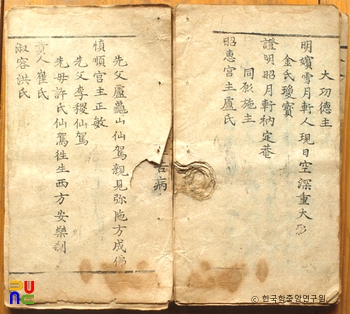 大功德主
明嬪雪月軒人現日空深重大
金氏瓊寶
證明昭月軒衲定菴
同彫施主
昭惠宮主盧氏
吉病
先父盧龜山仙駕親見弥陁方成佛
愼順宮主正敏
先父李稷仙駕
先母許氏仙駕往生西方安樂刹
貴人崔氏
淑容洪氏
ⓒ 한국학중앙연구원